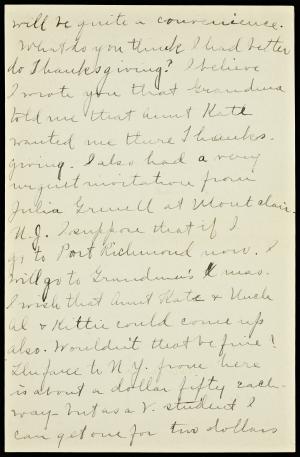 will be quite a convenience.
What do you think I had better
do Thanksgiving? I believe
I wrote you that Grandma
told me that Aunt Kate
wanted me there Thanks-
giving. I also had a very
urgent invitation from
Julia at Montclair
N.J. I suppose that if I
go to Port Richmond now. I
will go to Grandma's Xmas.
I wish that Aunt Kate & Uncle
Al & Kittie could come up
also. Wouldn't that be fine!
The fare to N.Y. from here
is about a dollar fifty each
way but as a V. student I
can get one for two dollars